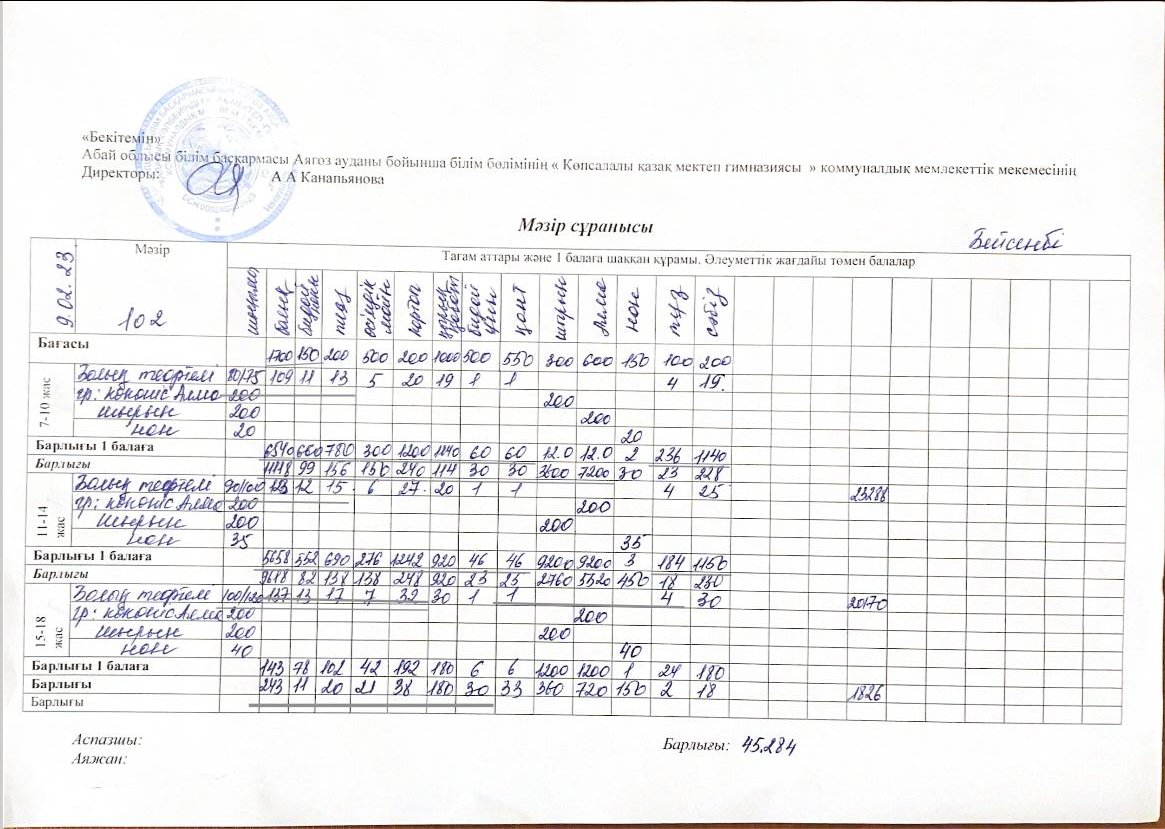 «Бекітемін»
Абай облысы білім басқармасы Аягоз ауданы бойынша білім бөлімінің « Көпсалалы қазақ мектеп гимназиясы » коммуналдық мемлекеттік мекемесінің
Директоры: А А Канапьянова
Мәзір сұранысы
Бейсенбі
9.02.23 Мәзір Тағам аттары және 1 балаға шаққан құрамы. Әлеуметтік жағдайы төмен балалар
102 балық май өсімдік майы қант шырын Алма нан тұз сәбіз
Бағасы 1700 150 200 500 200 1000 500 550 300 600 150 100 200
7-10 жас
80/75 109 11 13 5 20 19 1 1 4 19
гр: көкөніс Алма 200 200
шырын 200 200
нан 20 20
Барлығы 1 балаға 6540 660 780 300 1200 1140 60 60 12.0 12.0 2 236 1140
Барлығы 11118 99 156 150 240 114 30 30 3600 7200 30 23 228
11-14 жас
90/100 123 12 15 6 27 20 1 1 4 25 23286
гр: көкөніс Алма 200 200
шырын 200 200
нан 35 35
Барлығы 1 балаға 5658 552 690 276 1242 920 46 46 9200 9200 3 184 1150
Барлығы 9618 82 138 138 248 920 23 25 2760 5520 450 18 230
15-18 жас
100/120 137 13 17 7 32 30 1 1 4 30 20170
гр: көкөніс Алма 200 200
шырын 200 200
нан 40 40
Барлығы 1 балаға 143 78 102 42 192 180 6 6 1200 1200 1 24 180
Барлығы 243 11 20 21 38 180 30 33 360 720 150 2 18 1826
Барлығы
Аспазшы: Барлығы: 45.284
Аяжан: